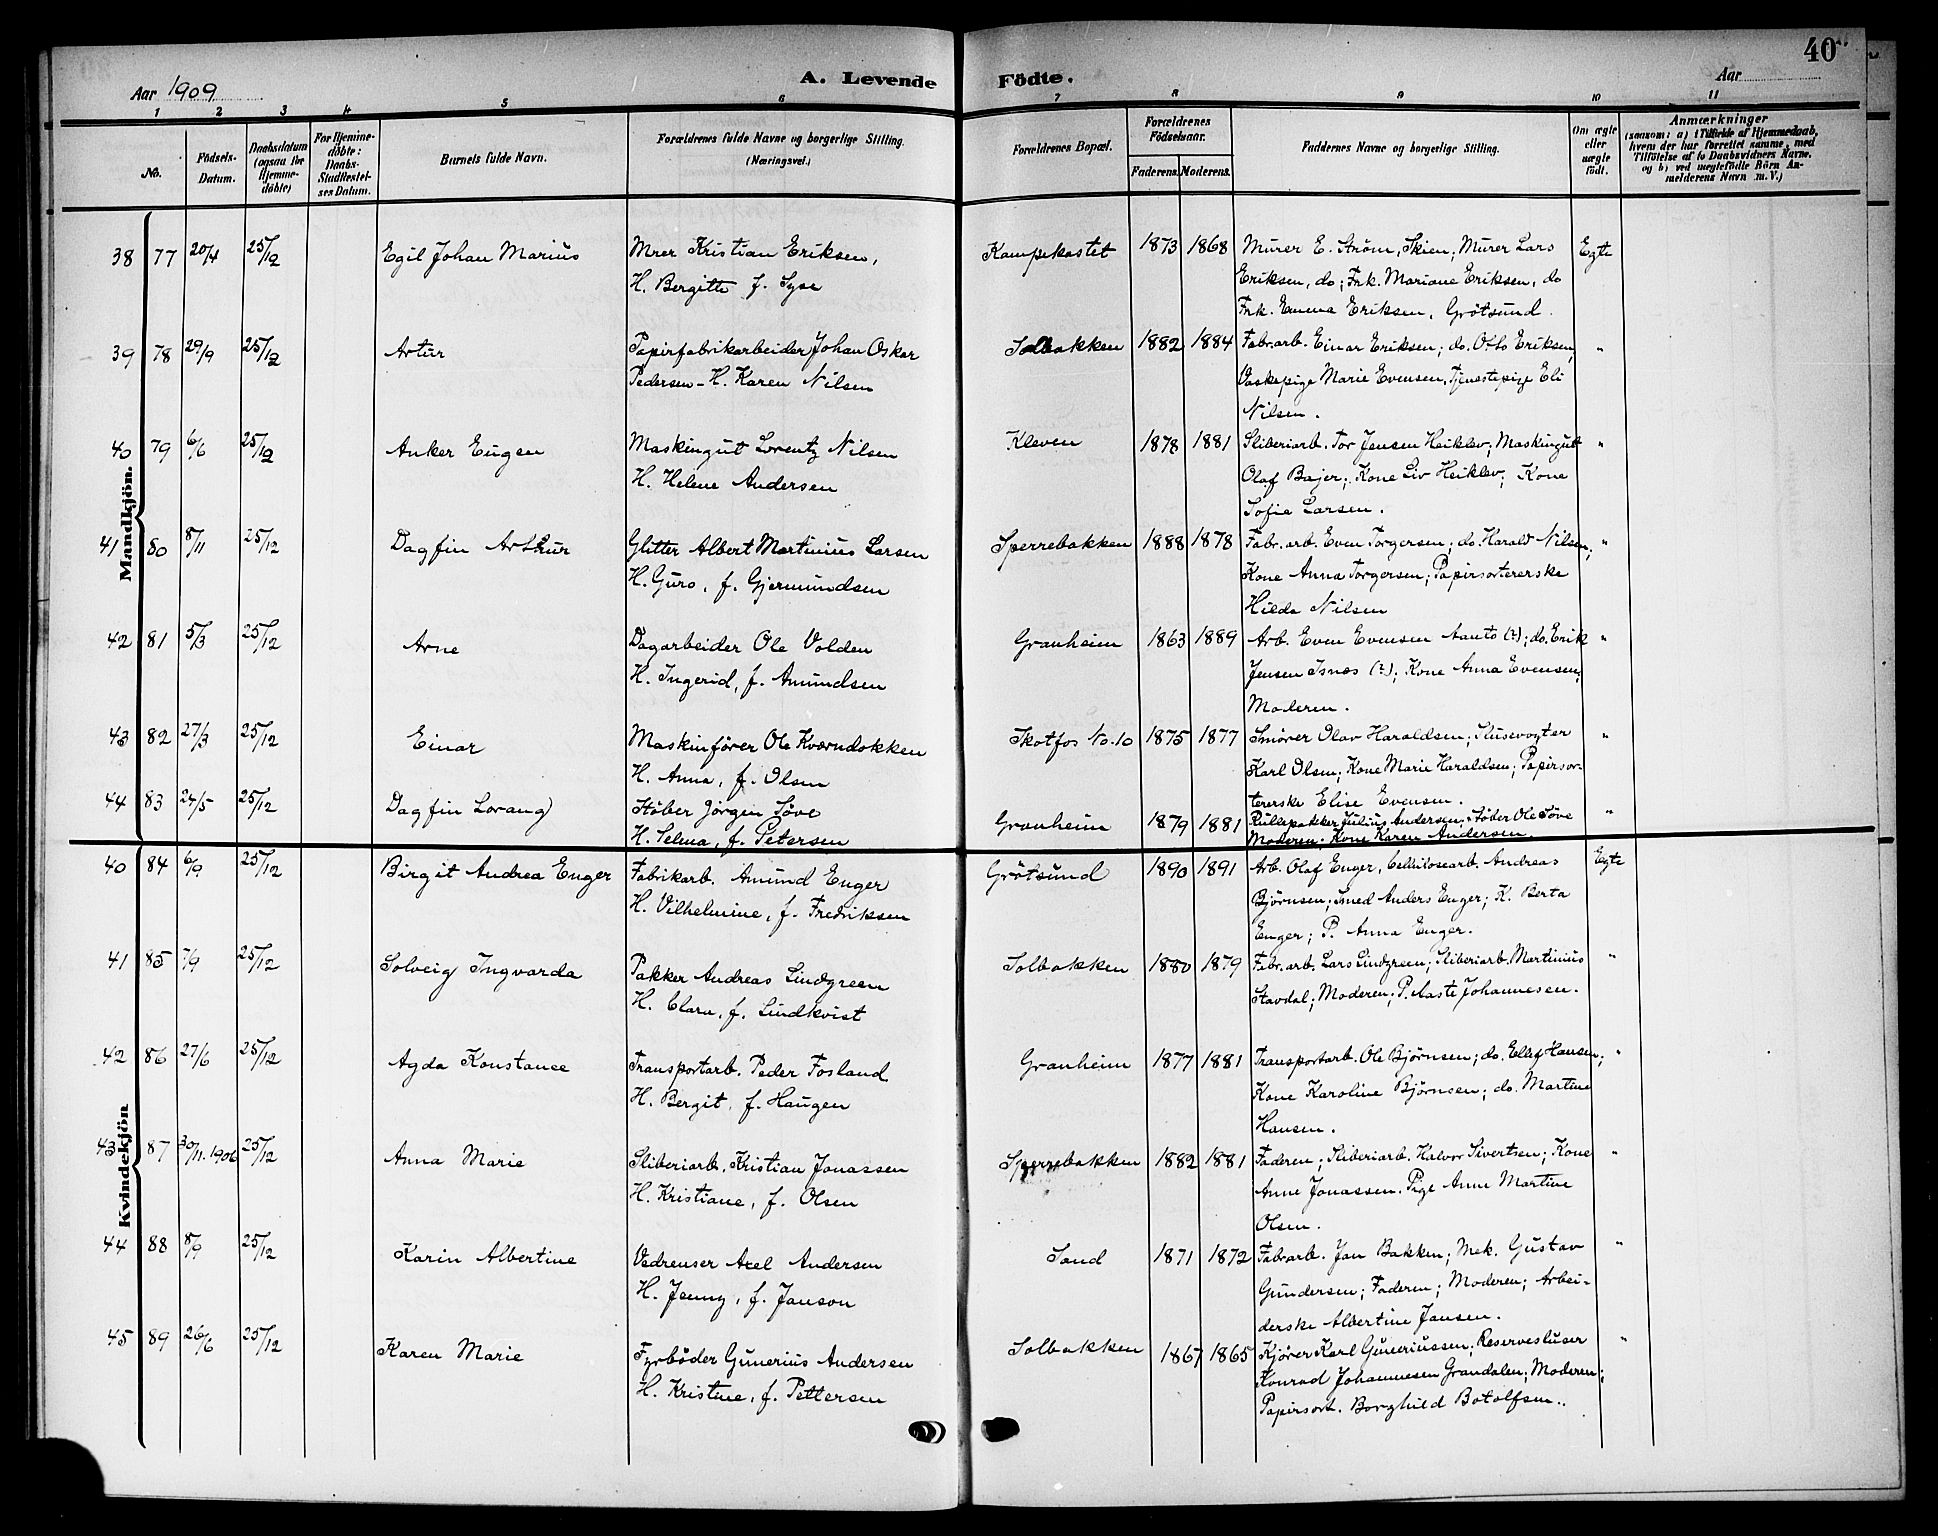 40
Aar 1909
A. Levende Födte.
Aar
1 2 3 4 5 6 7 8 9 10 11
No.
Födsels-Datum.
Daabsdatum (ogsaa for Hjemme-döbte)
For Hjemme-döbte: Daabs-Stadfæstel-ses Datum.
Barnets fulde Navn.
Forældrenes fulde Navne og borgerlige Stilling. (Næringsvei.)
Forældrenes Bopæl.
Forældrenes Födselsaar.
Faderens. Moderens.
Faddernes Navne og borgerlige Stilling.
Om ægte eller uægte født.
Anmærkninger
(saasom: a) i Tilfælde af Hjemmedaab,
hvem der har forrettet samme, med
Tilföielse af to Daabsvidners Navne,
og b) ved uægtefödte Börn An-
melderens Navn m. V.)
Mandkjön.
38 77 20/4 25/12 Egil Johan Marius Mrer Kristian Eriksen, Kampekastet 1873 1868 Murer E. Ström, Skien; Murer Lars Egte
H. Bergitte f. Lyse Eriksen, do; Frk. Mariane Eriksen, do
Frk. Emma Eriksen, Grötsund.
39 78 29/9 25/12 Artur Papirfabrikarbeider Johan Oskar Solbakken 1882 1884 Fabr.arb. Einar Eriksen; do. Otto Eriksen, "
Pedersen - H. Karen Nilsen Vaskepige Marie Evensen, Tjenestepige Eli
Nilsen.
40 79 6/6 25/12 Anker Eugen Maskingut Lorentz Nilsen Kleven 1878 1881 Sliberiarb. Tor Jensen Heiklev; Maskingut "
H. Helene Andersen Olaf Bajer; Kone Liv Heiklev; Kone
Sofie Larsen.
41 80 8/11 25/12 Dagfin Arthur Glitter Albert Martinius Larsen Sperrebakken 1888 1878 Fabr.arb. Even Torgersen; do. Harald Nilsen; "
H. Guro, f. Gjermundsen Kone Anna Torgersen; Papirsortererske
Hilda Nilsen
42 81 5/3 25/12 Arne Dagarbeider Ole Volden Granheim 1863 1889 Arb. Even Evensen Aanto (?); do. Erik "
H. Ingerid, f. Amundsen Jensen Isnæs (?); Kone Anna Evensen;
Moderen.
43 82 27/3 25/12 Einar Maskinfører Ole Kværndokken Skotfos No. 10 1875 1877 Smörer Olav Haraldsen; Slusevogter "
H. Anna, f. Olsen Karl Olsen; Kone Marie Haraldsen; Papirsor-
tererske Elise Evensen.
44 83 24/5 25/12 Dagfin Lorang Støber Jörgen Söve Granheim 1879 1881 Rullepakker Julius Andersen; Støber Ole Söve "
H. Selma, f. Petersen Moderen; Kone Karen Andersen.
Kvindekjön
40 84 6/9 25/12 Birgit Andrea Enger Fabrikarb. Amund Enger Grötsund 1890 1891 Arb. Olaf Enger, Cellulosearb. Andreas Egte
H. Vilhelmine, f. Fredriksen Bjørnsen; Smed Anders Enger; K. Berta
Enger; P. Anna Enger.
41 85 7/9 25/12 Solveig Ingvarda Pakker Andreas Lindgreen Solbakken 1880 1879 Fabr.arb. Lars Lindgreen; Sliberiarb. Martinius "
H. Clara, f. Lindkvist Stavdal; Moderen; P. Aaste Johannesen.
42 86 27/6 25/12 Agda Konstance Transportarb. Peder Fosland Granheim 1877 1881 Transportarb. Ole Bjørnsen; do. Ellef Hansen; "
H. Bergit, f. Haugen Kone Karoline Bjørnsen; do. Martine
Hansen.
43 87 30/11.1906 25/12 Anna Marie Sliberiarb. Kristian Jonassen Sperrebakken 1882 1881 Faderen; Sliberiarb. Halvor Sivertsen; Kone "
H. Kristiane, f. Olsen Anne Jonassen. Pige Anne Martine
Olsen.
44 88 8/9 25/12 Karin Albertine Vedrenser Axel Andersen Sand 1871 1872 Fabr.arb. Jan Bakken; Mek. Gustav "
H. Jenny, f. Janson Gundersen; Faderen; Moderen; Arbei-
derske Albertine Jansen.
45 89 26/6 25/12 Karen Marie Fyrböder Gunerius Andersen Solbakken 1867 1865 Kjører Karl Guneriussen; Reservesluser "
H. Kristine, f. Pettersen Konrad Johannesen Grandalen; Moderen;
Papirsort. Borghild Botolfsen..